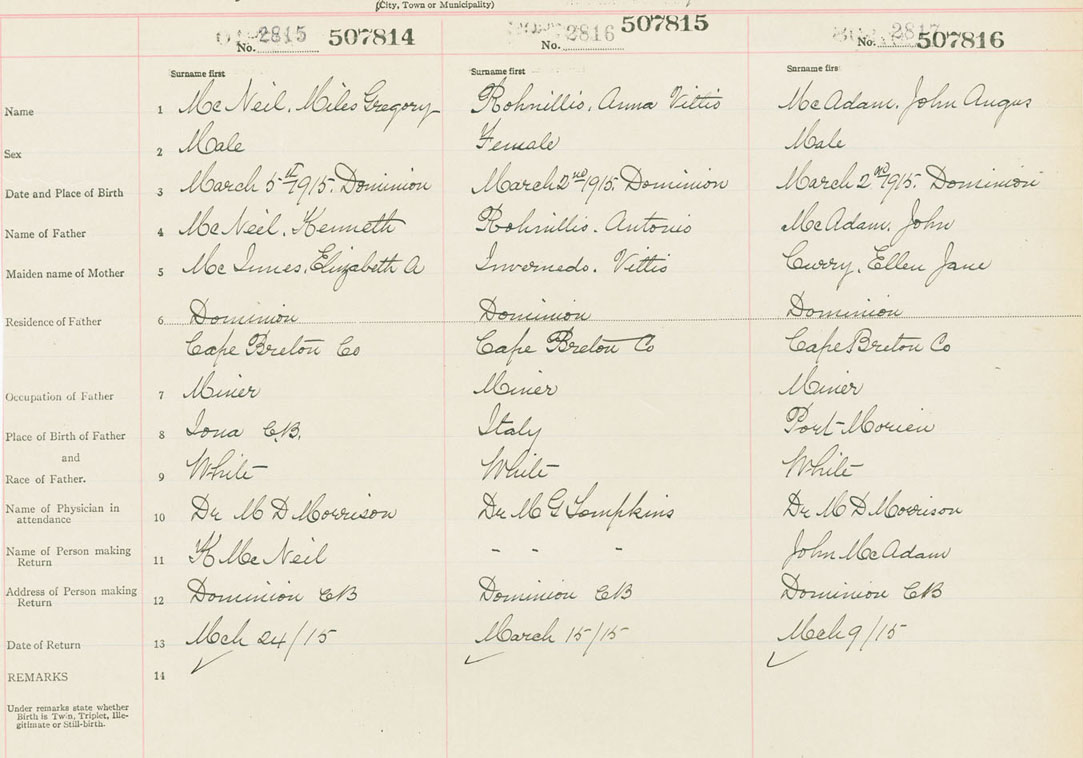 (City, Town or Municipality)
No. 2815 507814
No. 2816 507815
No. 2817 507816
Surname first Surname first Surname firs
Name 1 McNeil, Miles Gregory Rohnillis, Anna Vittis McAdam, John Angus
Sex 2 Male Female Male
Date and Place of Birth 3 March 5th 1915. Dominion March 2nd 1915. Dominion March 2nd 1915. Dominion
Name of Father 4 McNeil, Kenneth Rohnillis. Antonio McAdam, John
Maiden name of Mother 5 McInnes, Elizabeth A Invernedo. Vittis Curry, Ellen Jane
Residence of Father 6 Dominion Dominion Dominion
Cape Breton Co Cape Breton Co Cape Breton Co
Occupation of Father 7 Miner Miner Miner
Place of Birth of Father 8 Iona C.B. Italy Port Morien
and
Race of Father. 9 White White White
Name of Physician in
attendance 10 Dr M D Morrison Dr M G Tompkins Dr M D Morrison
Name of Person making
Return 11 K McNeil " " " John McAdam
Address of Person making
Return 12 Dominion CB Dominion CB Dominion CB
Date of Return 13 Mch 24/15 March 15/15 Mch 9/15
REMARKS 14
Under remarks state whether
Birth is Twin, Triplet, Ille-
gitimate or Still-birth.